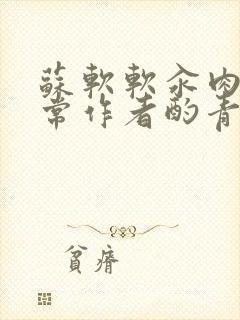 蘇軟軟汆肉
常作者酌青
貧瘠